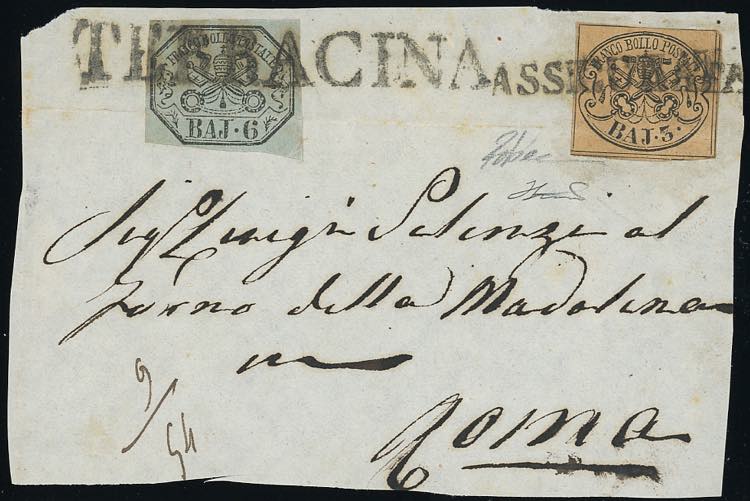 TERRACINA ASSICURATA
FRANCO BOLLO POSTALE
BAJ. 6
FRANCO BOLLO POSTALE
BAJ. 3.
Sig Luigi al
forno della Madalena
in
Roma
9/54